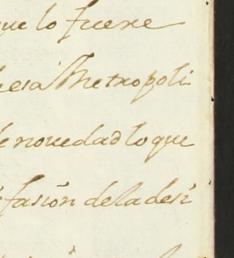 que lo fuere
esa Metropoli
de novedad lo que
fasión de la desi